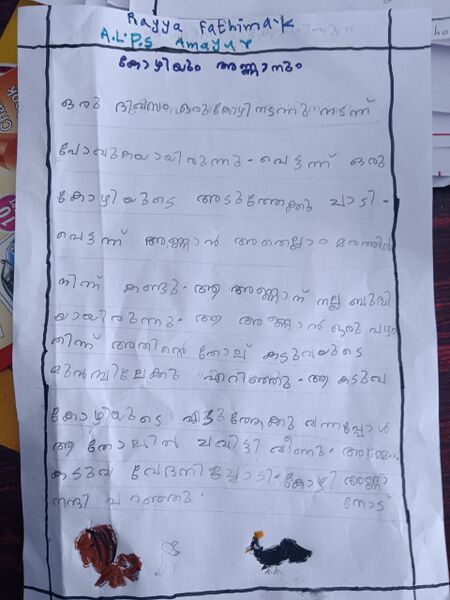 Rayya Fathima.K
A.L.P.S Amayur
കോഴിയും അണ്ണാനും
ഒരു ദിവസം ഒരു കോഴി നടന്നു നടന്ന്
പോവുകയായിരുന്നു. പെട്ടന്ന് ഒരു
കോഴിയുടെ അടുത്തേക്കു ചാടി.
പെട്ടന്ന് അണ്ണാൻ അതെല്ലാം മരത്തിൽ
നിന്ന് കണ്ടു. ആ അണ്ണാന് നല്ല ബുദ്ധി
യായിരുന്നു. ആ അണ്ണാൻ ഒരു പഴം
തിന്ന് അതിന്റെ തോല് കടുവയുടെ
മുൻമ്പിലേക്കു എറിഞ്ഞു. ആ കടുവ
കോഴിയുടെ അടുത്തേക്കു വന്നപ്പോൾ
ആ തോലിൽ ചവിട്ടി വീണു.
കടുവ വേദനിച്ചോടി. കോഴി അണ്ണാ
നന്ദി പറഞ്ഞു. നോട്